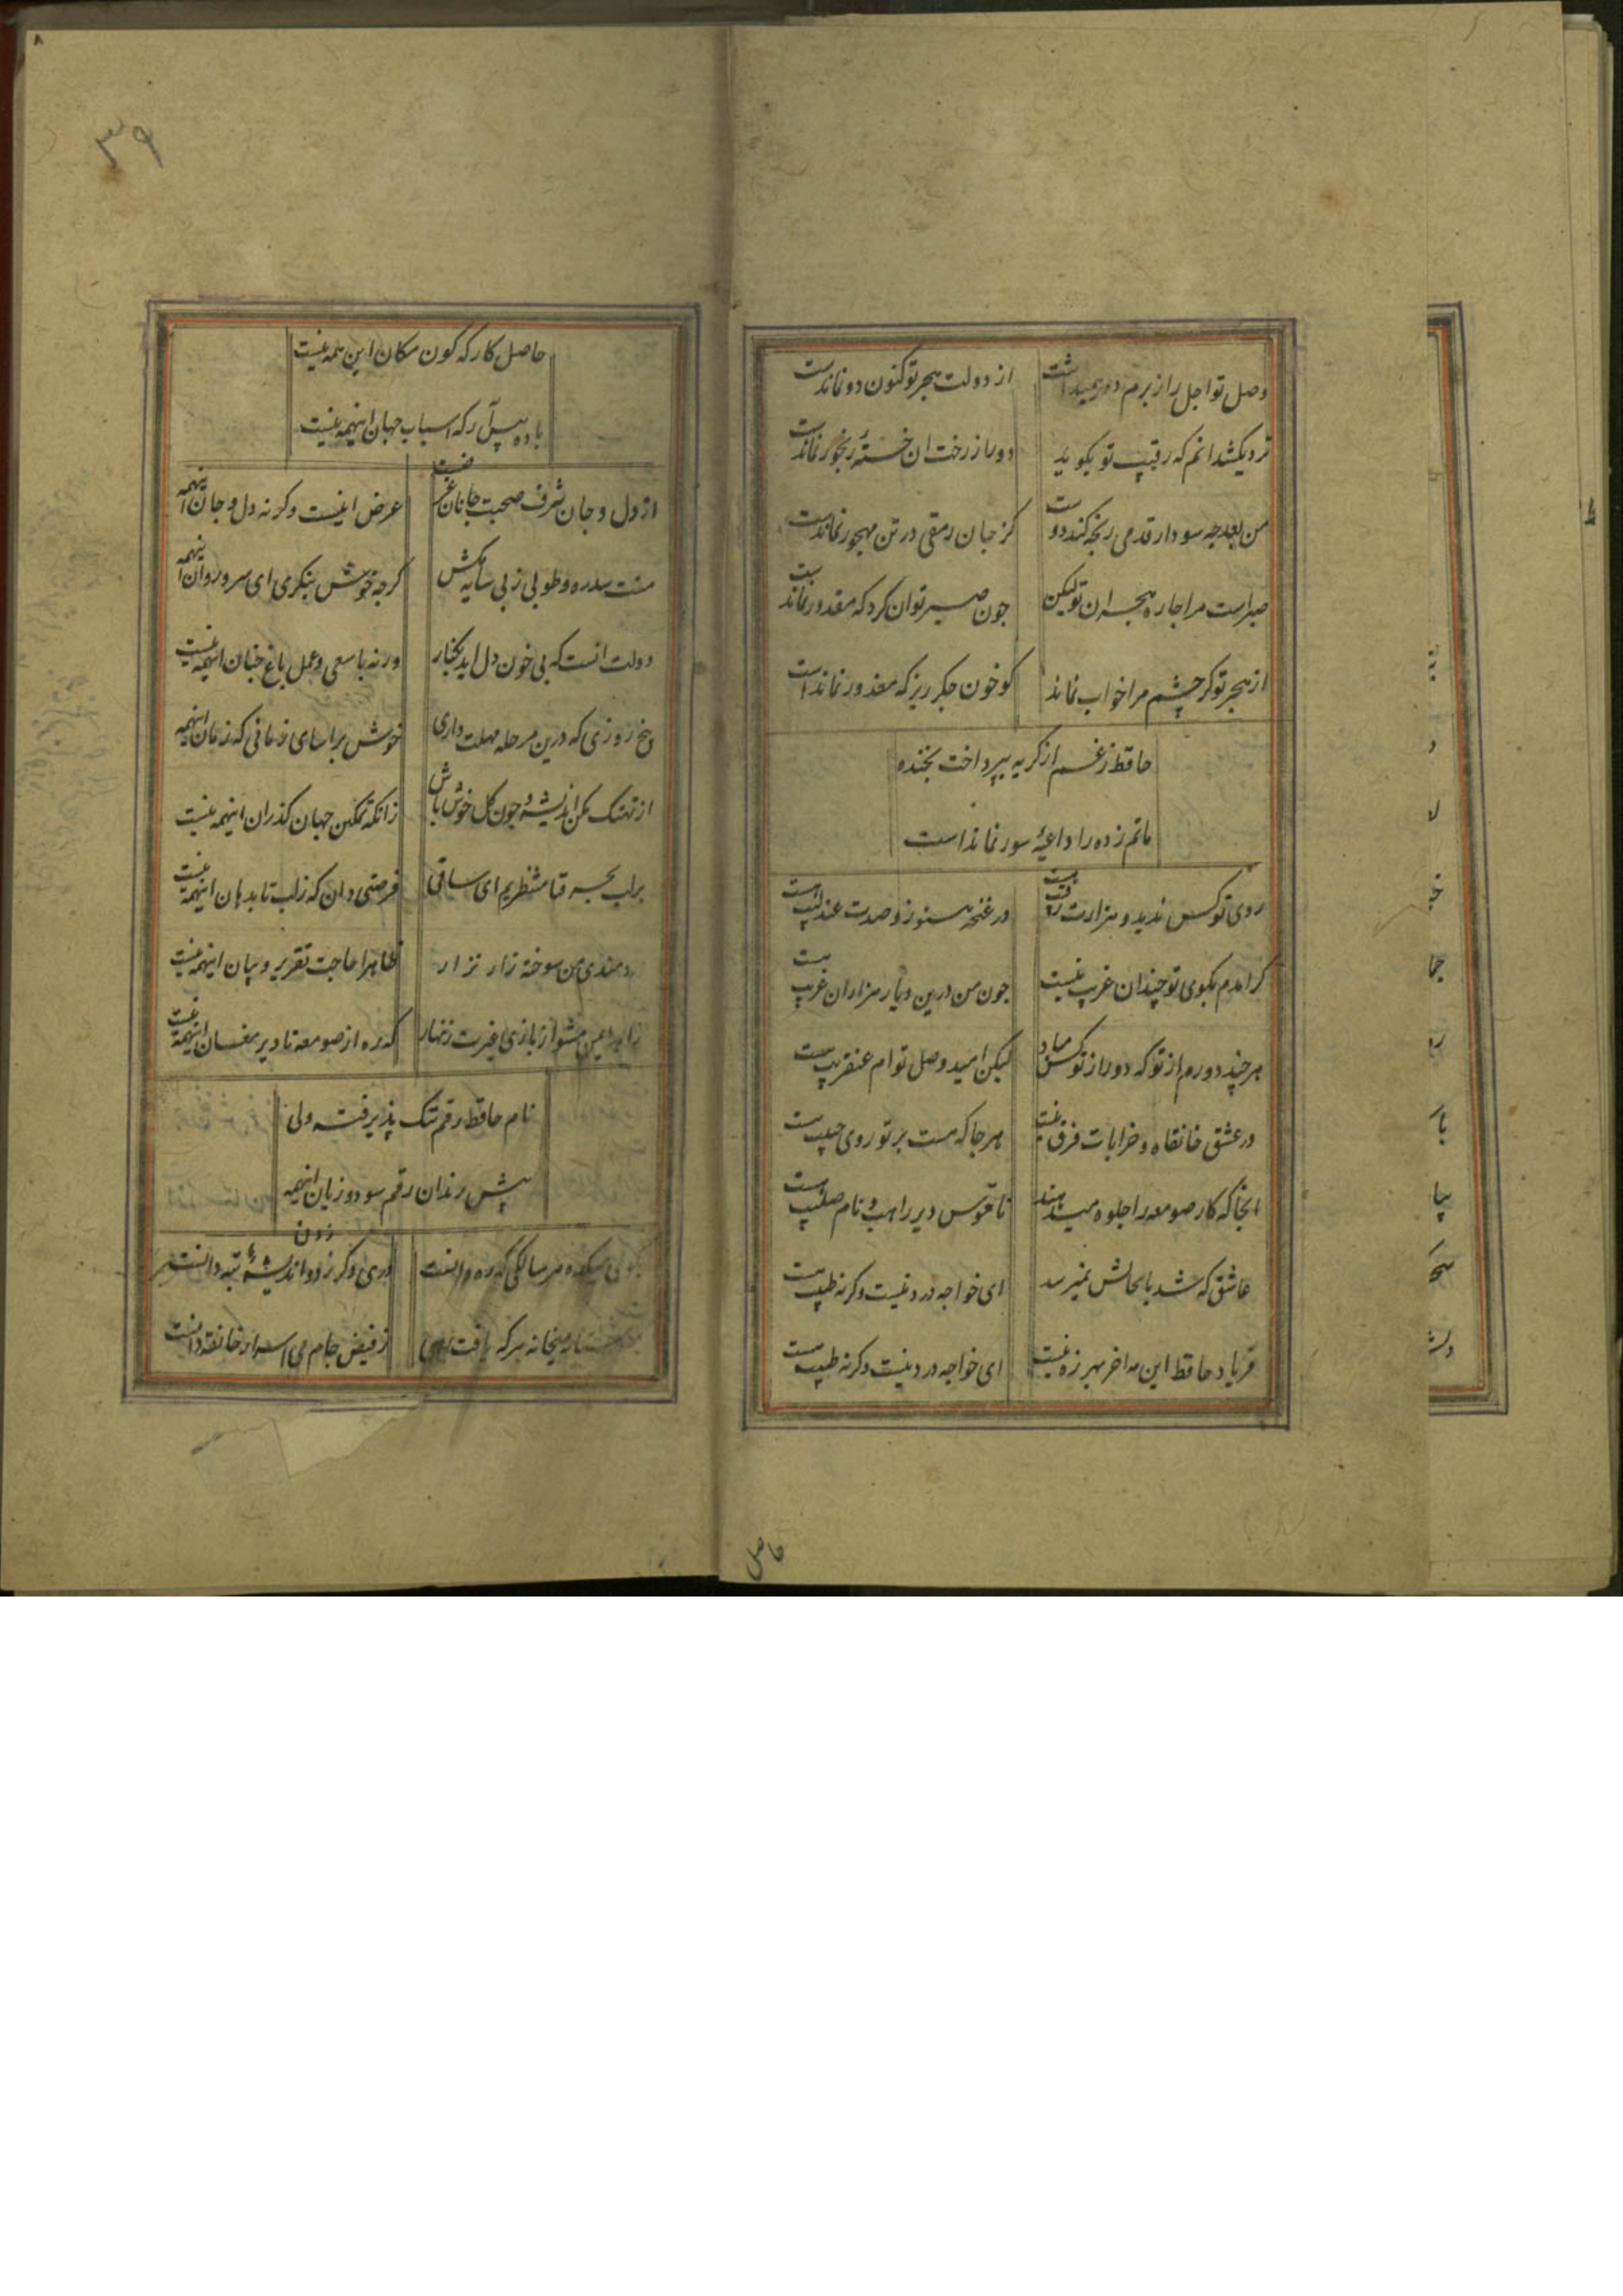 وصل تو اجل را ز برم دور همیداشت از دولت هجر تو کنون دور نماندست
نزدیک شد انم که رقیب تو بکوید دور از رخت ان خستهٔ رنجور نماندست
من بعد چه سود ار قدمی رنجه کند دوست کز جان رمقی در تن مهجور نماندست
صبر است مرا چاره هجران تو لیکن چون صبر توان کرد که مقدور نماندست
از هجر تو کر چشم مرا خواب نماند کو خون جکر ریز که معذور نماند است
حافظ ز غم از کریه بپرداخت بخنده
ماتم زده را داعیهٔ سور نماند است
روی تو کس ندید و هزارت رقیب هست در غنچه هنوز و صدت عندلیب هست
کر امدم بکوی تو چندان غریب نیست جون من درین دیار هزاران غریب هست
هر چند دورم از تو که دور از تو کس مباد لیکن امید وصل توام عنقریب هست
در عشق خانقاه و خرابات فرق نیست هر جا که هست پرتو روی حبیب هست
انجا که کار صومعه را جلوه میدهند ناقوس دیر راهب و نام صلیب هست
عاشق که شد که یار بحالش نمیرسد ای خواجه درد نیست وکرنه طبیب هست
فریاد حافظ این همه اخر بهرزه نیست ای خواجه درد نیست وکرنه طبیب هست
حاصل
۳۹
حاصل کارکه کون مکان این همه نیست
باده پیش آر که اسباب جهان اینهمه نیست
از دل و جان شرف صحبت جانان غرضست غرض اینست وکرنه دل و جان اینهمه
منت سدره و طوبی ز پی سایه مکش کرجه خوش بنکری ای سرو روان اینهمه
دولت انست که بی خون دل اید بکنار ورنه با سعی و عمل باغ جنان اینهمه نیست
پنج روزی که درین مرحله مهلت داری خوش براسای زمانی که زمان اینهمه
از تهتک مکن اندیشه و جون کل خوش باش زانکه تمکین جهان کذران اینهمه نیست
بر لب بحر فنا منتظریم ای ساقی فرصتی دان که ز لب تا بدهان اینهمه نیست
دردمندی من سوخته زار نزار ظاهرا حاجت تقریر و بیان اینهمه نیست
زاهد ایمن مشو از بازی غیرت زنهار که ره از صومعه تا دیر مغان اینهمه نیست
نام حافظ رقم نیک پذیرفت ولی
پیش رندان رقم سود و زیان اینهمه
بکوی میکده هر سالکی که ره دانست دری دکر زدن اندیشهٔ تبه دانست
بر استانه میخانه هر که یافت رهی ز فیض جام می اسرار خانقه دانست